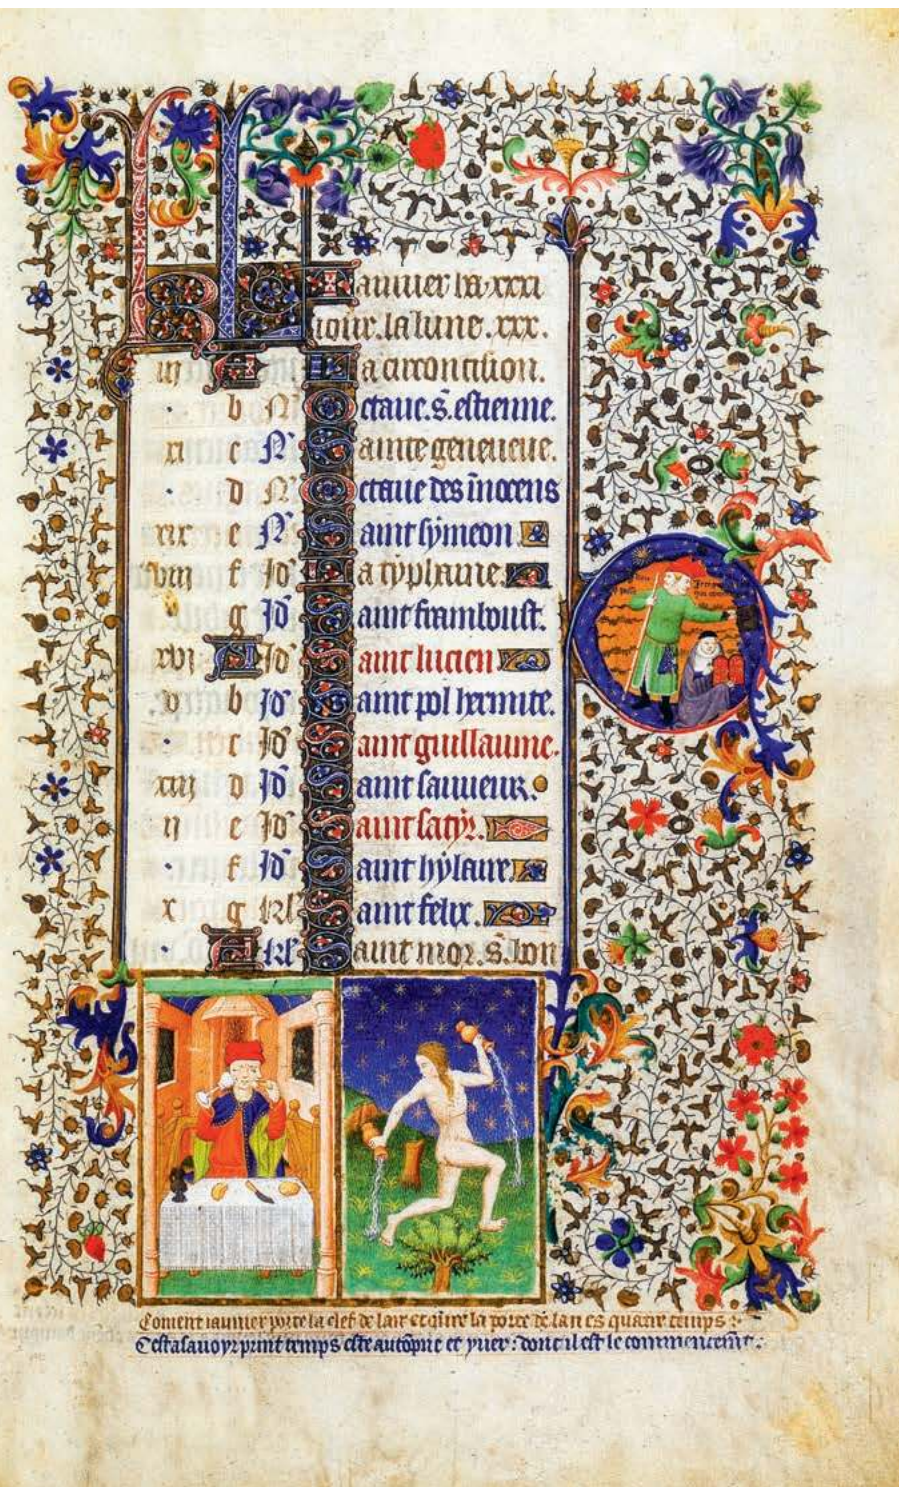 KL Januier la .xxxi
iour. la lune .xxx.
iij A La circoncision.
b N Octaue. s. estienne.
xi c N Sainte geneueue.
d N Octaue des inocens
xix e N Saint symeon
viii f Id La typhaine.
g Id Saint framboust.
xvi A Id Saint lucien
v b Id Saint pol hermite.
c Id Saint guillaume.
xiii d Id Saint sauueur.
ii e Id Saint satyr.
f Id Saint hylaire
x g kl Saint felix.
A kl Saint mor. s. bon
Coment ianuier porte la clef de lan et quire la porte de lan es quatre temps :
Cest asauoyr print temps este autopne et yuer : dont il est le commencement :